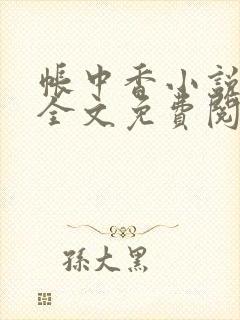 帳中香小說
全文免費閱
孫大黑